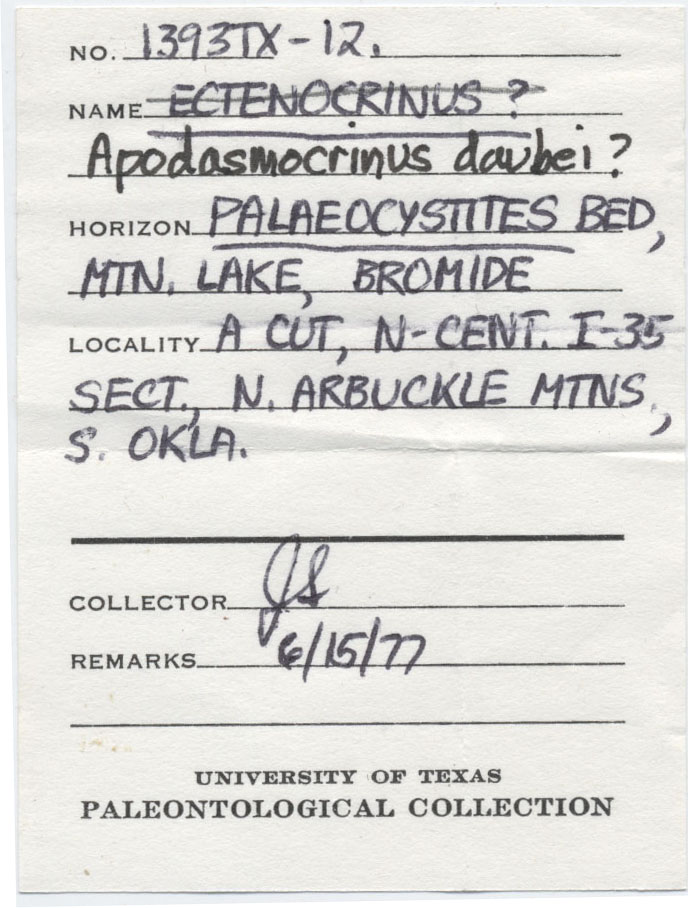 NO. 1393TX-12.
NAME ECTENOCRINUS ?
Apodasmocrinus daubei ?
HORIZON PALAEOCYSTITES BED,
MTN. LAKE, BROMIDE
LOCALITY A CUT, N-CENT. I-35
SECT., N. ARBUCKLE MTNS.,
S. OKLA.
COLLECTOR JS
REMARKS 6/15/77
UNIVERSITY OF TEXAS
PALEONTOLOGICAL COLLECTION